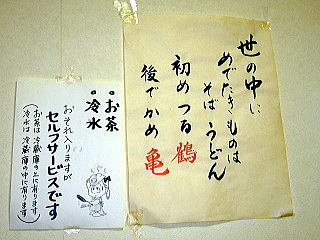 世の中に
めでたきものは
そば うどん
初め つる 鶴
後で かめ 亀
お茶
冷水
おそれ入りますが
セルフサービスです
(お茶は冷蔵庫の上に有ります
冷水は冷蔵庫の中に有ります)